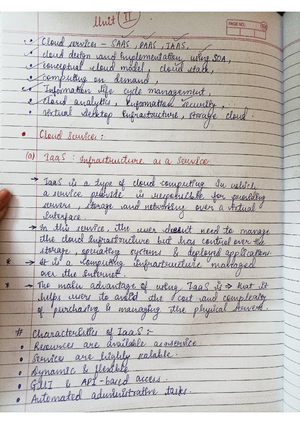 Unit II
PAGE NO:
• Cloud services - SAAS, PAAS, IAAS,
• cloud design and implementation using SOA,
• conceptual cloud model, cloud stack,
• computing on demand,
• Information life cycle management,
• cloud analytics, information security,
• virtual desktop infrastructure, storage cloud.
• Cloud Services:
(a) IaaS: Infrastructure as a Service
→ IaaS is a type of cloud computing in which
a service provider is responsible for providing
servers, storage and networking over a virtual
interface.
→ In this service, the user doesnt need to manage
the cloud infrastructure but has control over the
storage, operating systems & deployed applications.
* → It is a computing infrastructure managed
over the Internet.
* → The main advantage of using IaaS is → that it
helps users to avoid the cost and complexity
of purchasing & managing the physical servers.
# Characteristics of IaaS:-
• Resources are available as a service
• Services are highly scalable.
• Dynamic & flexible
• GUI & API-based access.
• Automated administrative tasks.